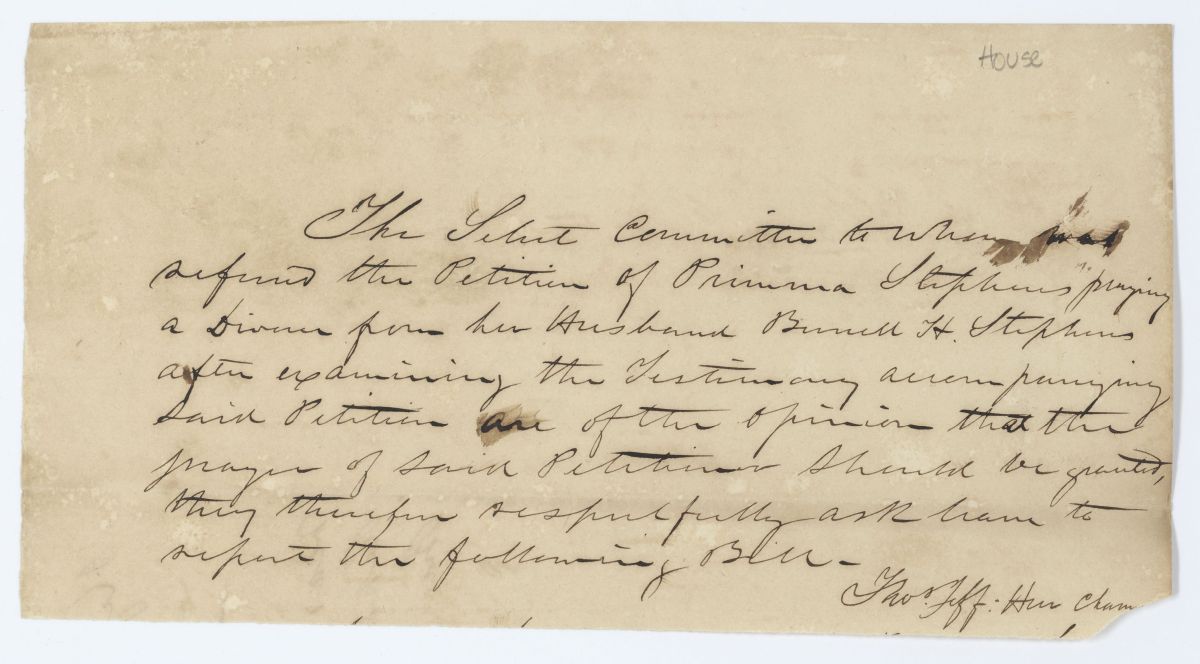 House
The Select Committee to whom was
referred the Petition of Primma Stephens praying
a Divorce from her Husband Burrell H. Stephens
after examining the Testimony accompanying
said Petition are of the opinion that the
prayer of said Petitioner should be granted,
they therefore respectfully ask leave to
report the following Bill -
Thos Jeff: